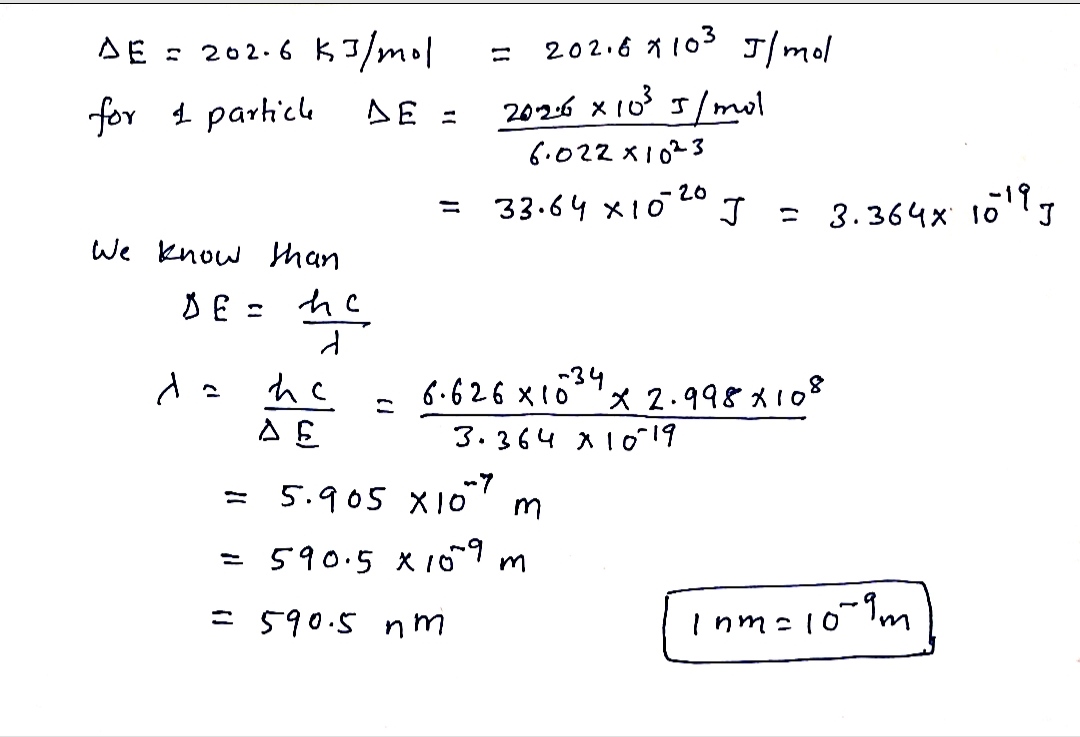 ΔE = 202.6 KJ/mol = 202.6 × 10³ J/mol
for 1 particle ΔE = 202.6 × 10³ J/mol / 6.022 × 10²³
= 33.64 × 10⁻²⁰ J = 3.364 × 10⁻¹⁹ J
We know than
ΔE = hc / λ
λ = hc / ΔE = 6.626 × 10⁻³⁴ × 2.998 × 10⁸ / 3.364 × 10⁻¹⁹
= 5.905 × 10⁻⁷ m
= 590.5 × 10⁻⁹ m
= 590.5 nm
1 nm = 10⁻⁹ m